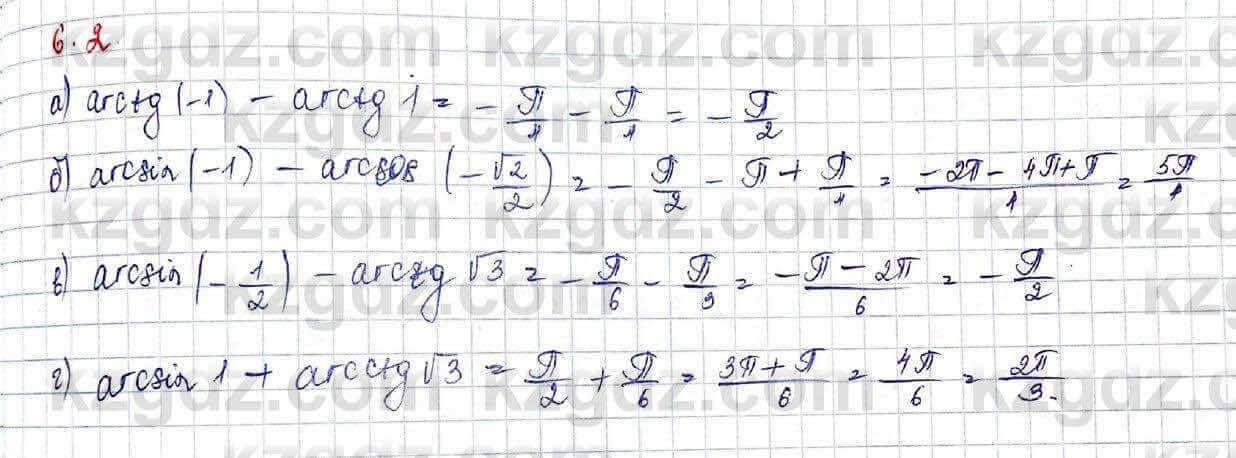 6.2.
а) arctg(-1) - arctg 1 = - π/4 - π/4 = - π/2
б) arcsin(-1) - arccos(-√2/2) = - π/2 - π + π/4 = (-2π - 4π + π)/4 = 5π/4
в) arcsin(-1/2) - arctg √3 = - π/6 - π/3 = (-π - 2π)/6 = - π/2
г) arcsin 1 + arcctg √3 = π/2 + π/6 = (3π + π)/6 = 4π/6 = 2π/3.
kzgdz.com